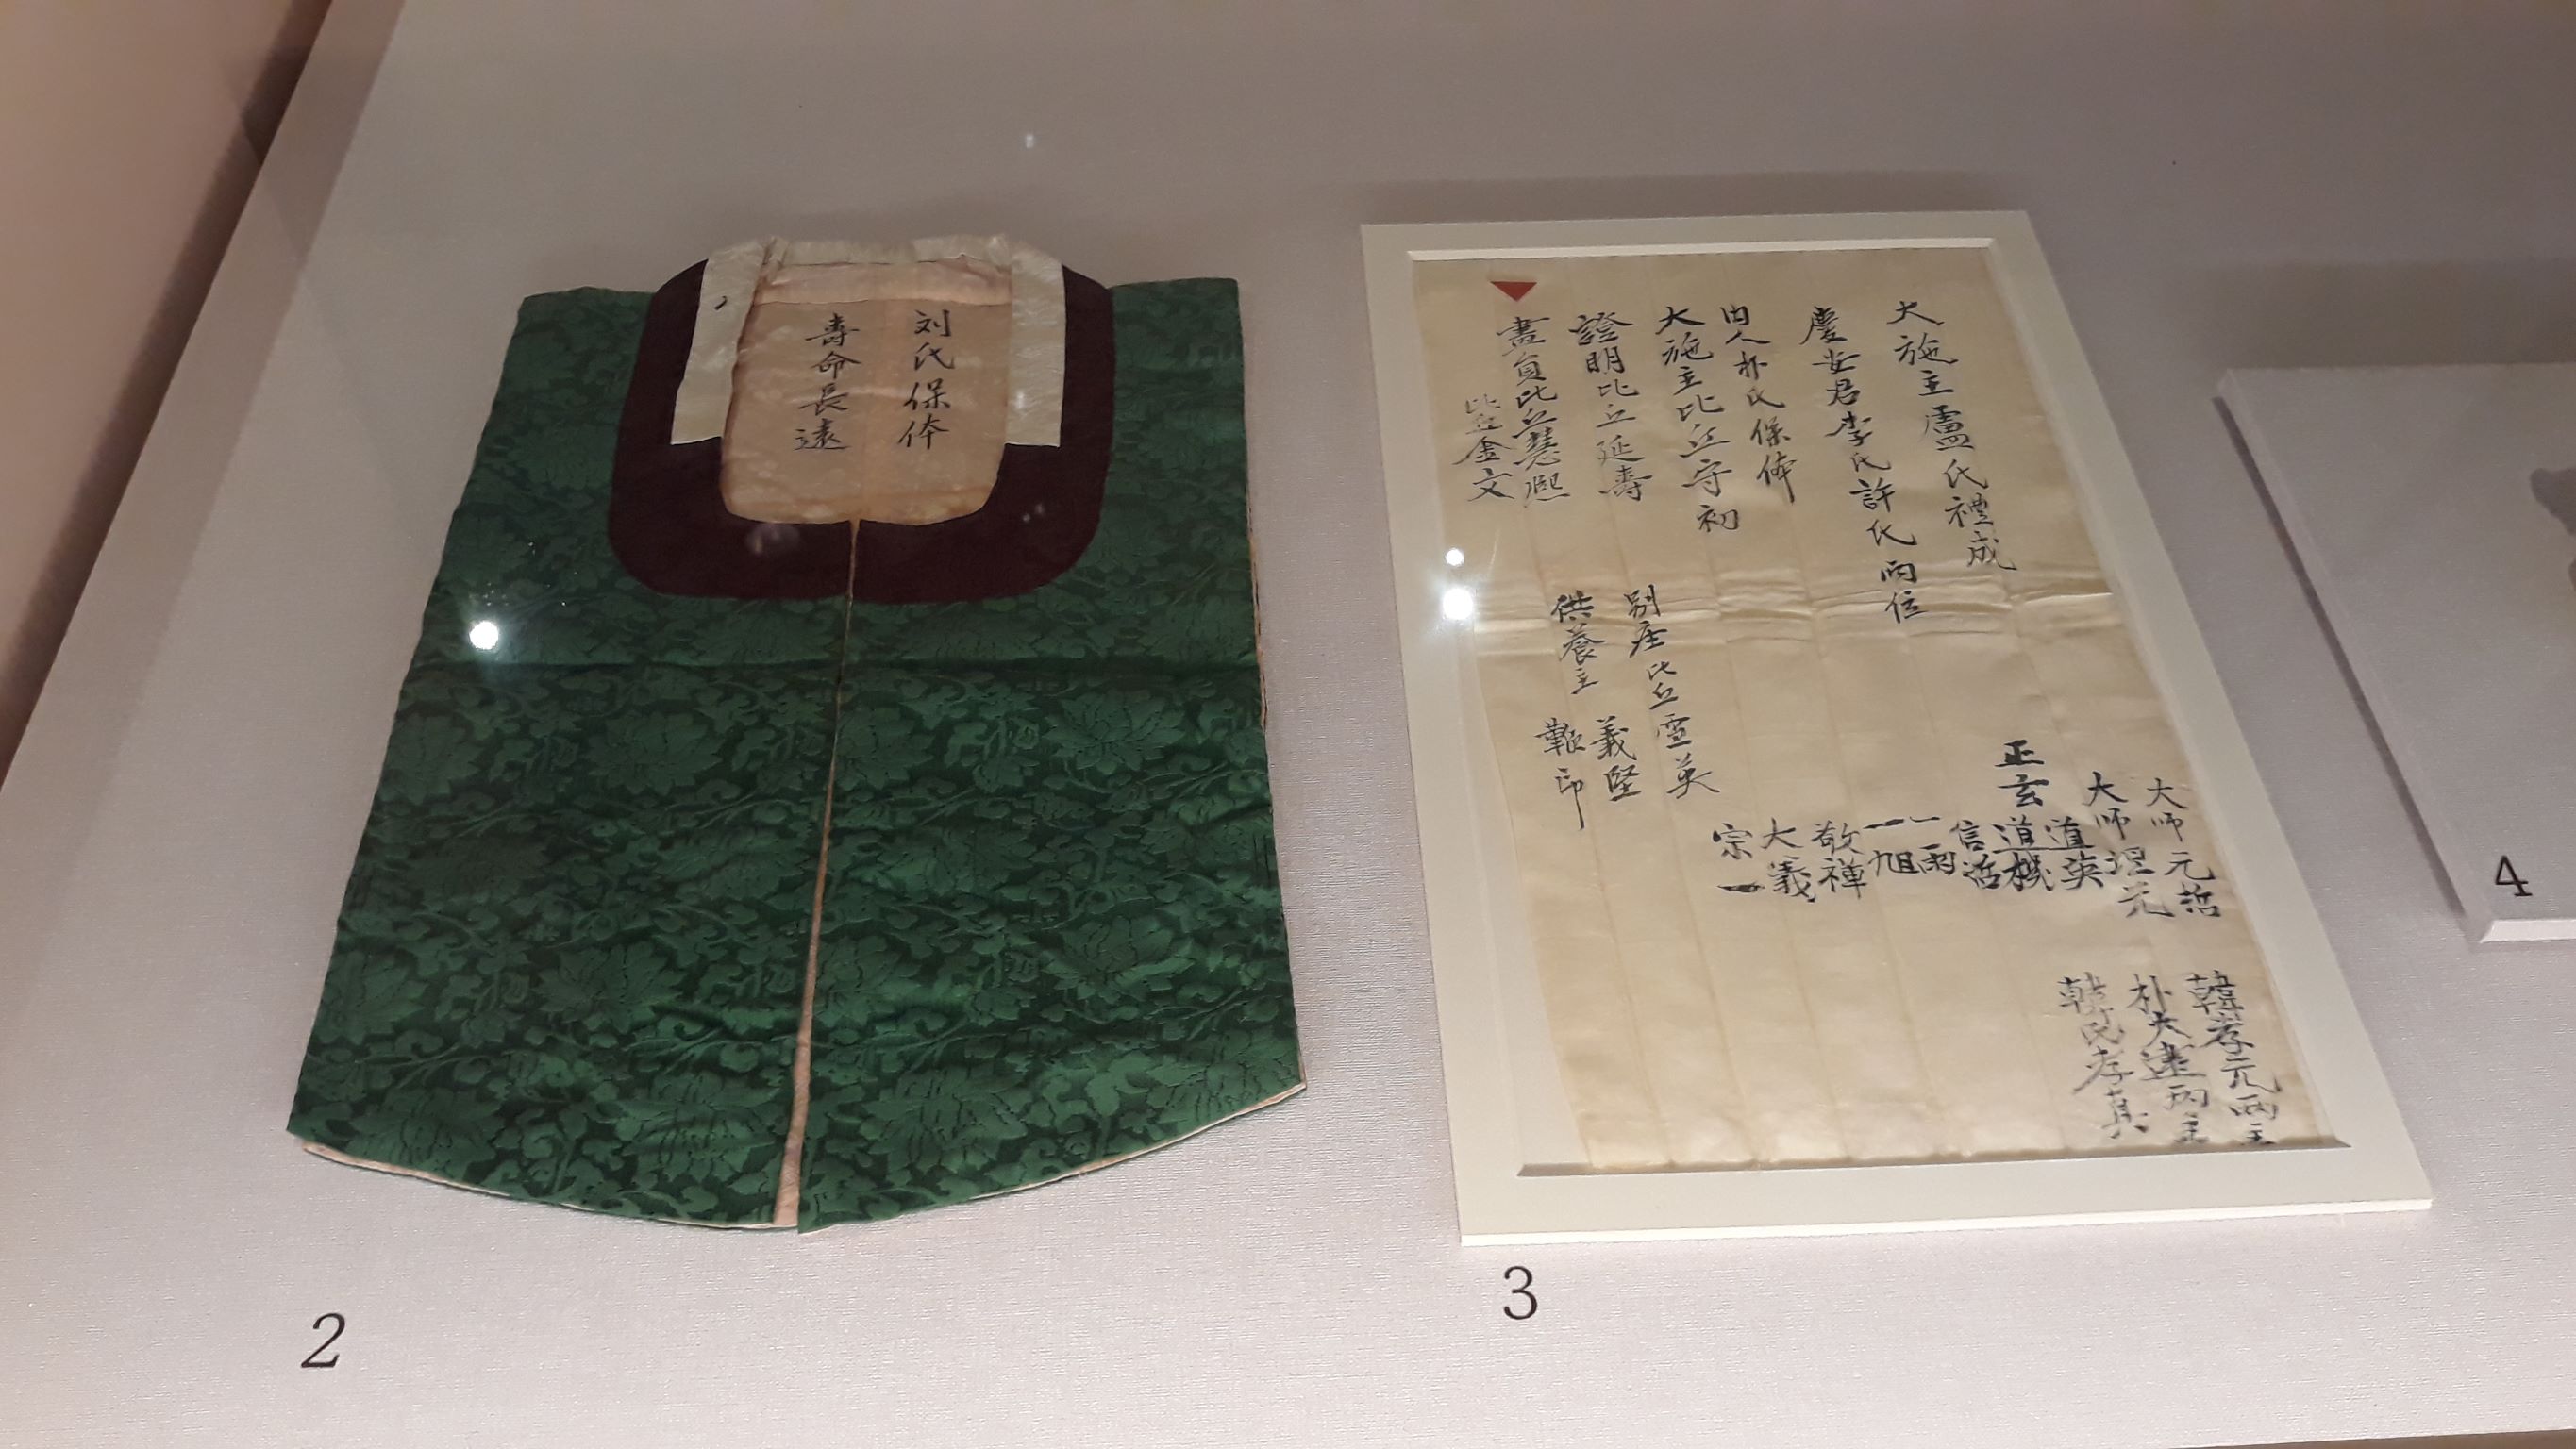 刘氏保体
壽命長遠
大施主盧氏禮成
慶安君李氏許氏兩位
内人朴氏保体
大施主比丘守初
證明比丘延壽
畫員比丘慧熙
比丘金文
别座比丘雪英
供養主 義堅
印
大师元哲
大师理元
道英
正玄道機
信活
一雨
一旭
敬禪
大義
宗一
韓孝元兩主
朴大建兩主
韓氏孝真
2
3
4